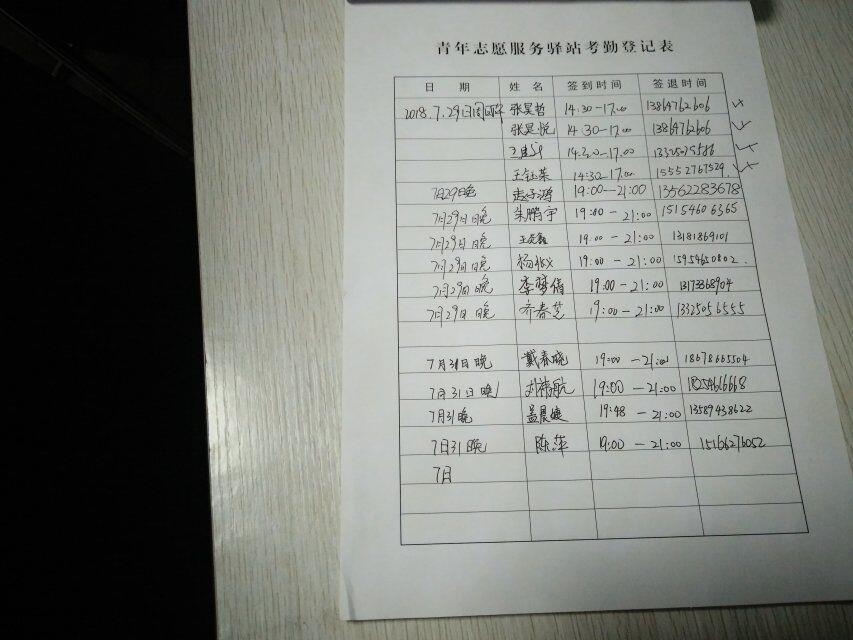 青年志愿服务驿站考勤登记表
日 期 姓 名 签到时间 签退时间
2018.7.29 张昊哲 14:30-17:00 13864762606
张昊悦 14:30-17:00 13864762606
14:30-17:00
王钰荣 14:30-17:00 15552767529
7月29日晚 19:00-21:00 13562283678
7月29日晚 朱鹏宇 19:00-21:00 15154606365
7月29日晚 19:00-21:00 13181869101
7月29日晚 19:00-21:00 15954650802.
7月29日晚 李梦倩 19:00-21:00 13173368904
7月29日晚 齐春芝 19:00-21:00 13325056555
7月31日晚 戴春晓 19:00-21:00 18678665504
7月31日晚 19:00-21:00
7月31晚 孟晨 19:48-21:00 13589438622
7日31晚 陈萍 19:00-21:00 15166276052
7月